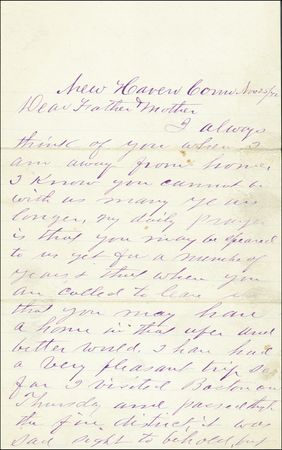 New Haven Conn Nov 25/72
Dear Father & Mother
I always
think of you when I
am away from home.
I know you cannot be
with us many years
longer, my daily prayer
is that you may be spared
to us yet for a number of
years & that when you
are called to leave us
that you may have
a home in that uper and
better world. I have had
a very pleasant trip so
far I visited Boston on
Thursday and passed through
the fire district it was
sad sight to behold, but